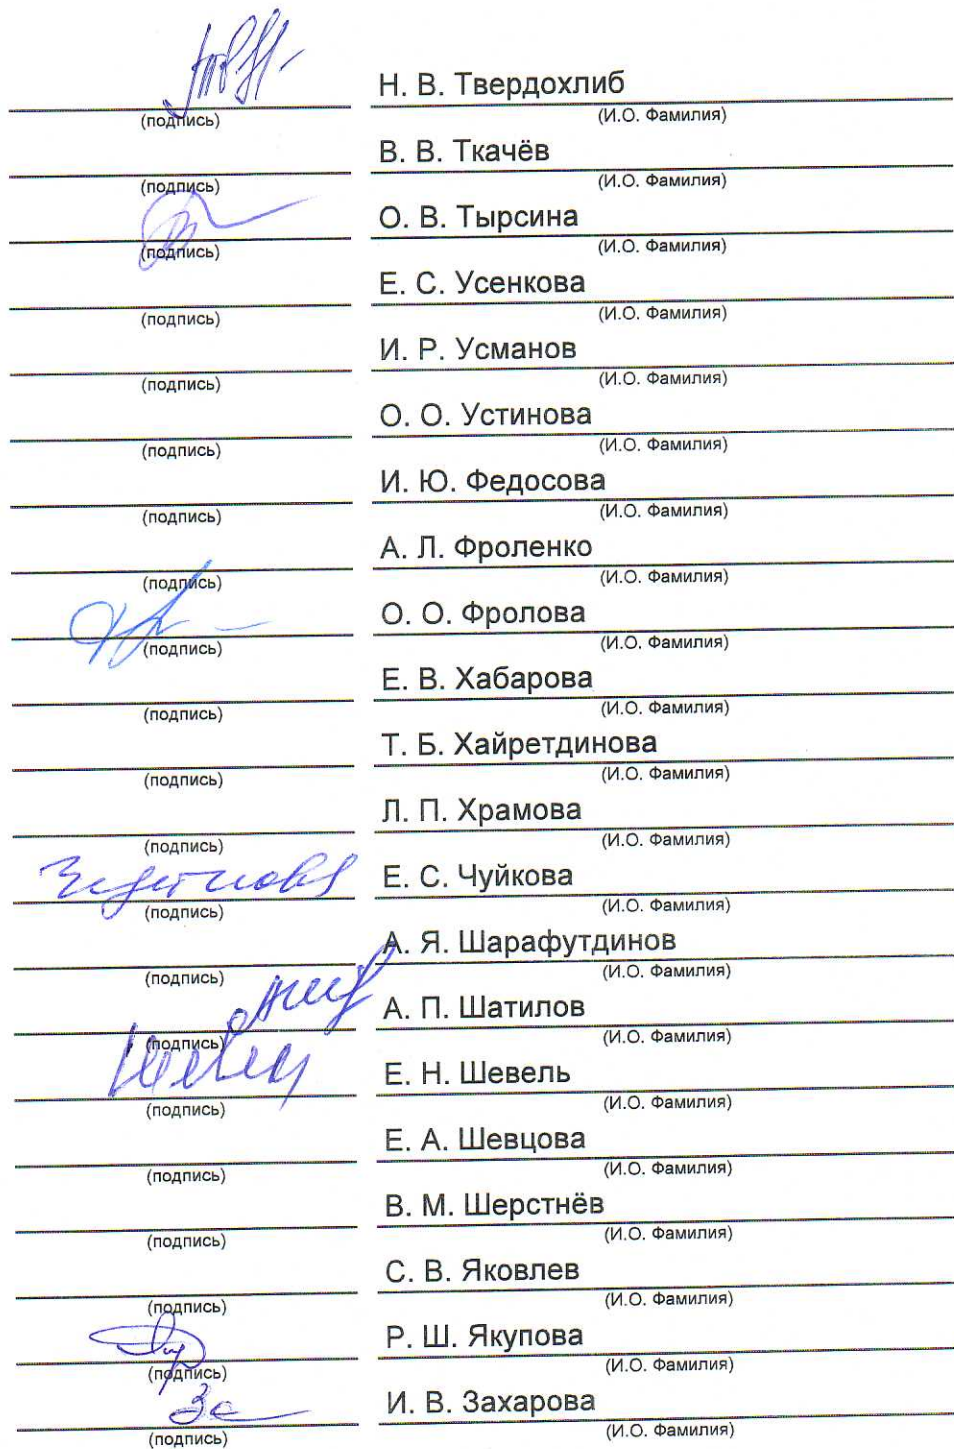 Н. В. Твердохлиб
(подпись) (И.О. Фамилия)
В. В. Ткачёв
(подпись) (И.О. Фамилия)
О. В. Тырсина
(подпись) (И.О. Фамилия)
Е. С. Усенкова
(подпись) (И.О. Фамилия)
И. Р. Усманов
(подпись) (И.О. Фамилия)
О. О. Устинова
(подпись) (И.О. Фамилия)
И. Ю. Федосова
(подпись) (И.О. Фамилия)
А. Л. Фроленко
(подпись) (И.О. Фамилия)
О. О. Фролова
(подпись) (И.О. Фамилия)
Е. В. Хабарова
(подпись) (И.О. Фамилия)
Т. Б. Хайретдинова
(подпись) (И.О. Фамилия)
Л. П. Храмова
(подпись) (И.О. Фамилия)
Е. С. Чуйкова
(подпись) (И.О. Фамилия)
А. Я. Шарафутдинов
(подпись) (И.О. Фамилия)
А. П. Шатилов
(подпись) (И.О. Фамилия)
Е. Н. Шевель
(подпись) (И.О. Фамилия)
Е. А. Шевцова
(подпись) (И.О. Фамилия)
В. М. Шерстнёв
(подпись) (И.О. Фамилия)
С. В. Яковлев
(подпись) (И.О. Фамилия)
Р. Ш. Якупова
(подпись) (И.О. Фамилия)
И. В. Захарова
(подпись) (И.О. Фамилия)